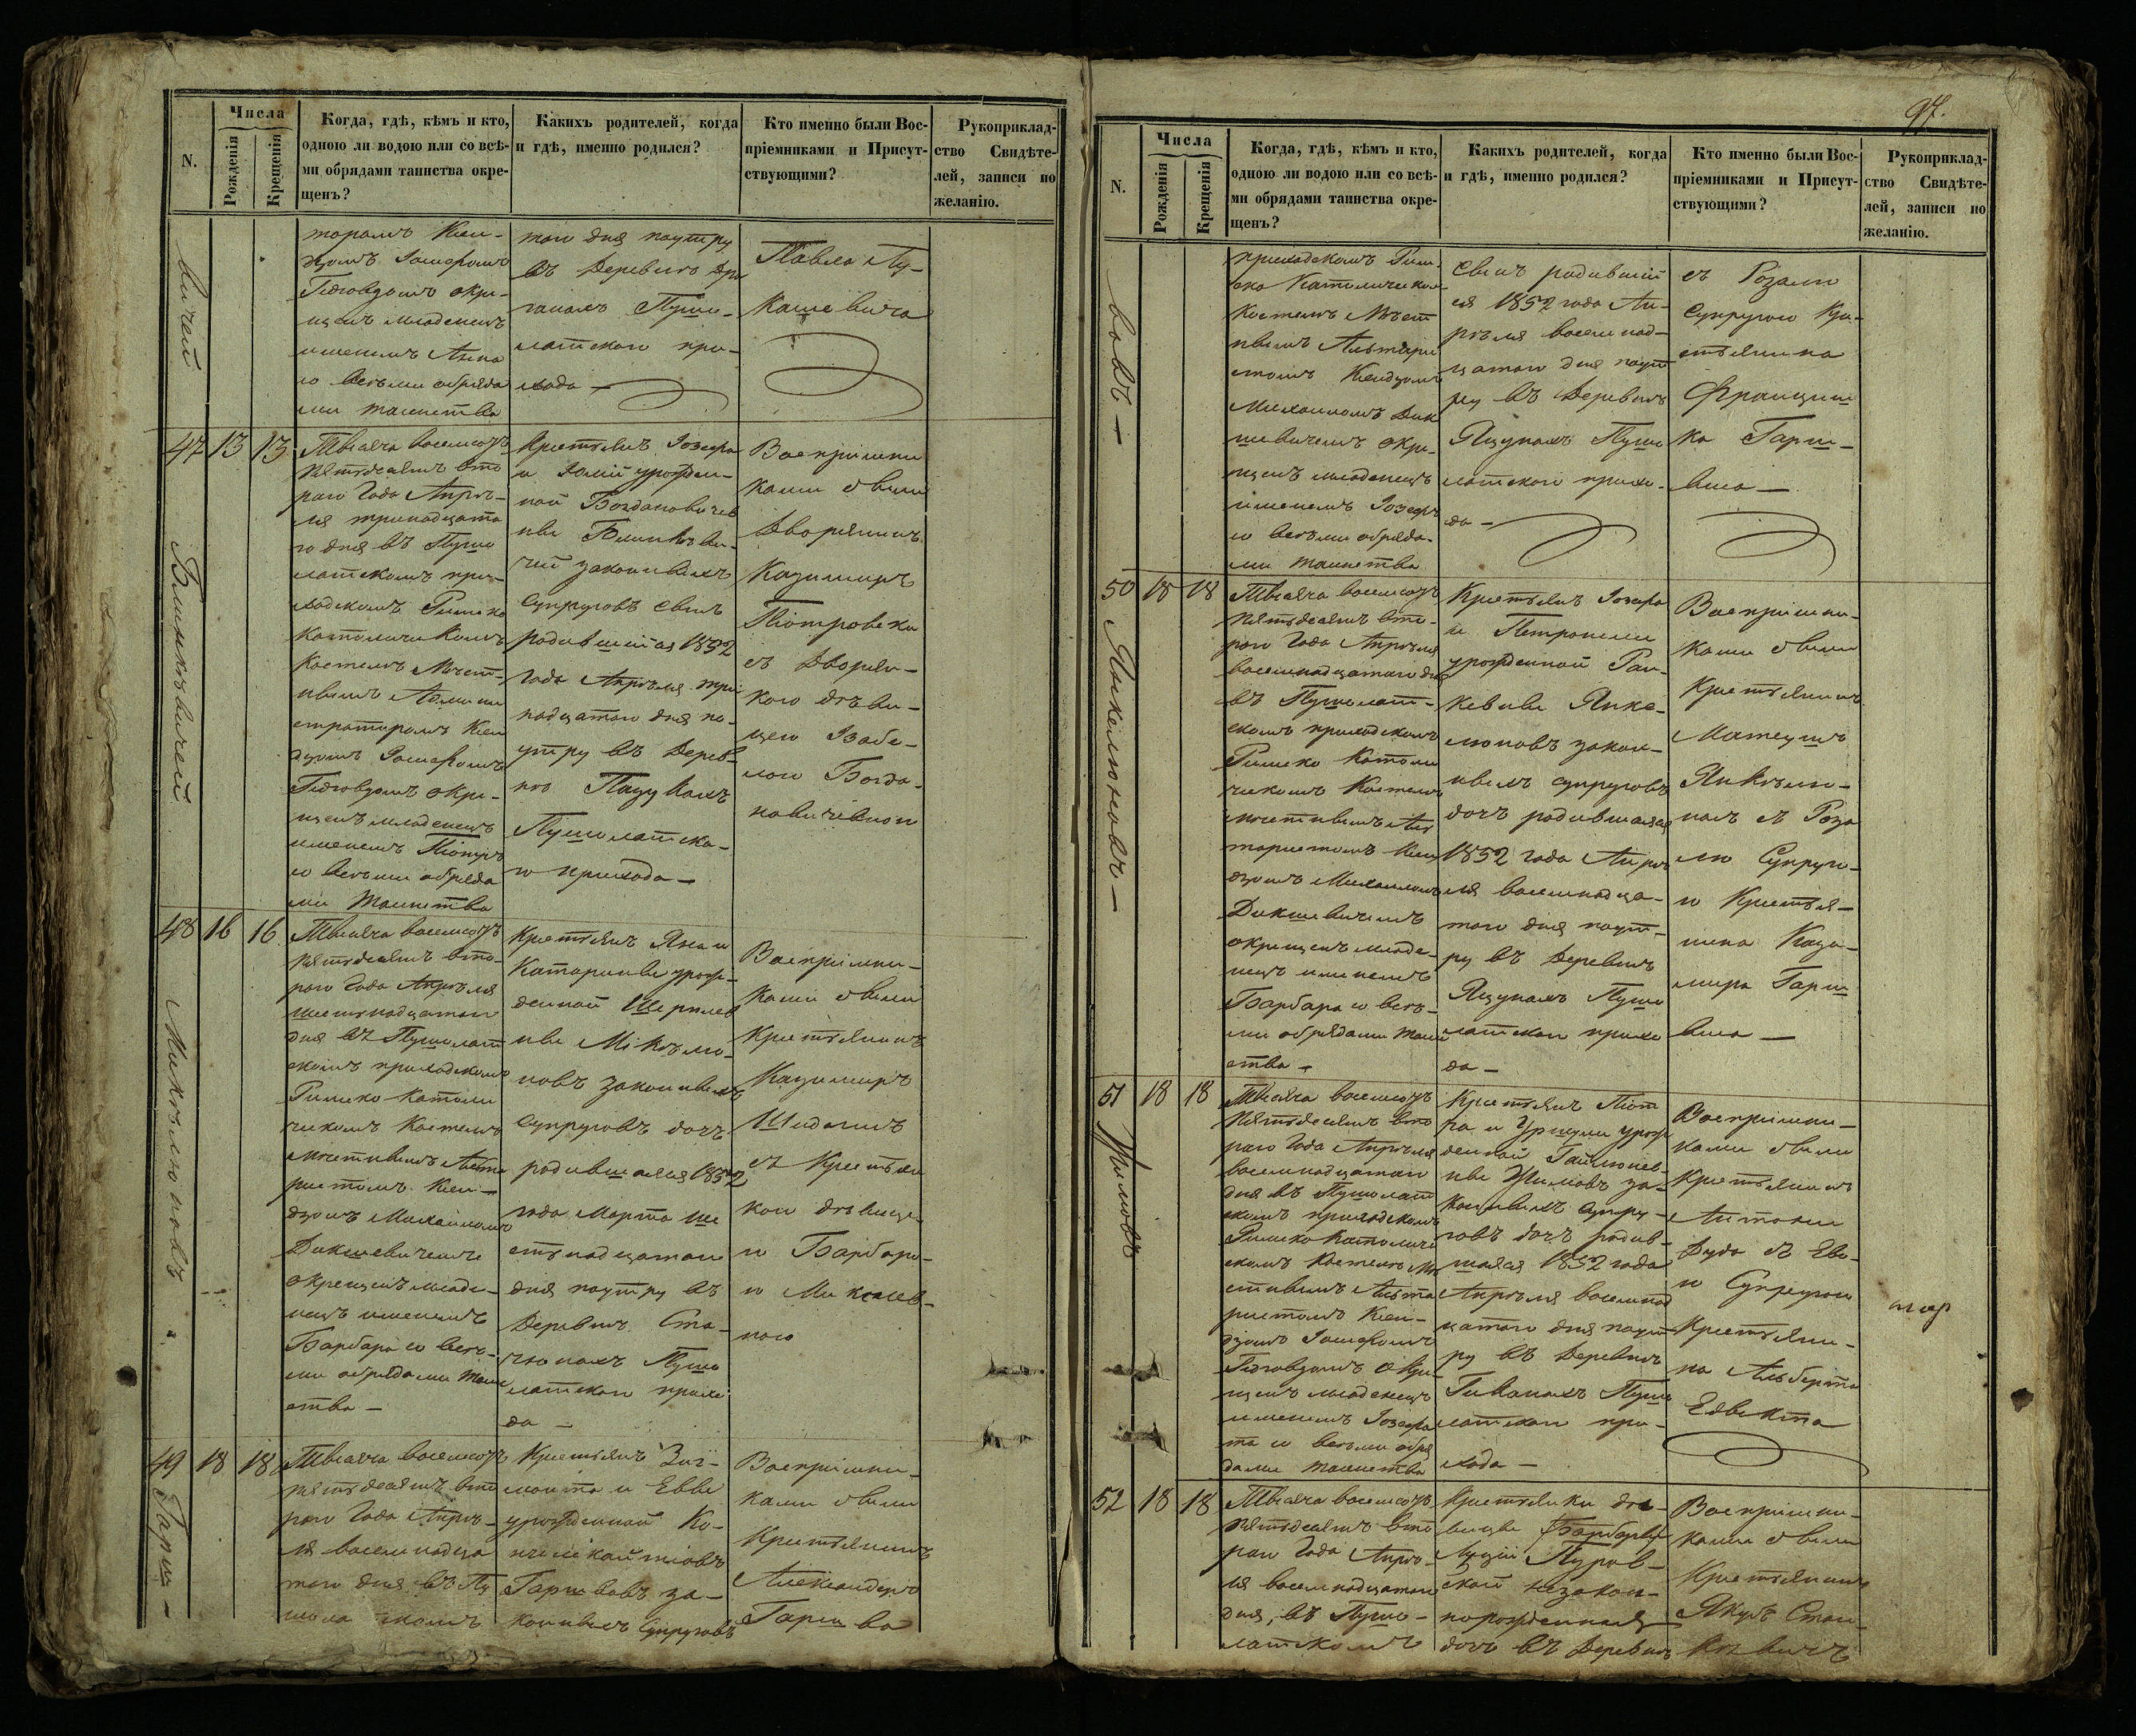 N.
Числа
Рожденія
Крещенія
Когда, гдѣ, кѣмъ и кто,
одною ли водою или со всѣ-
ми обрядами таинства окре-
щенъ?
Какихъ родителей, когда
и гдѣ, именно родился?
Кто именно были Вос-
пріемниками и Присут-
ствующими?
Рукоприклад-
ство Свидѣте-
лей, записи по
желанію.
вичей
торомъ Ксен-
дзомъ
окре-
щенъ младенецъ
именемъ Анна
со всѣми обряда
ми таинства
того дня поутру
въ Деревнѣ
Пушо-
латскаго при-
хода —
Павла Лу-
кашевича
47 13 13
Тысяча восемсотъ
пятьдесятъ вто
раго Года Апрѣ-
ля тринадцата
го дня въ Пушо
латскомъ при-
ходскомъ Римско
Католическомъ
Костелѣ Мѣст-
нымъ Админи
стратором Ксен
дзомъ
окре-
щенъ младенецъ
именемъ Піотръ
со всѣми обряда
ми таинства
Крестьянъ Іозефа
и урожден-
ной Богдановичев
ны
законныхъ
Супруговъ сынъ
родившійся 1852
года Апрѣля три
надцатаго дня по-
утру въ Дерев-
нѣ
Пушолатска-
го прихода —
Воспріемни
ками были
Дворянинъ
Казимиръ
Піотровски
съ Дворян-
кою дѣви-
цею Изабе-
лою Богда-
новичевною
48 16 16
Микѣлюновъ
Тысяча восемсотъ
пятьдесятъ вто-
раго Года Апрѣля
шестнадцатаго
дня въ Пушолат
скомъ приходскомъ
Римско Католи
ческомъ Костелѣ
мѣстнымъ Альта
ристомъ Ксен-
дзомъ Михаиломъ
Дикшевичемъ
окрещенъ младе-
нецъ именемъ
Барбара со всѣ-
ми обрядами таин
ства —
Крестьянъ Яна и
Катарины урож-
денной
ны Мікѣлю-
новъ законныхъ
Супруговъ дочь
родившаяся 1852
года Марта ше
стнадцатаго
дня поутру въ
Деревнѣ Ста-
чюнахъ Пушо
латскаго прихо
да —
Воспріемни-
ками были
Крестьянинъ
Казимиръ
съ Крестьян
кою дѣвице-
ю Барбаро-
ю
ною
49 18 18
Гарш —
Тысяча восемсотъ
пятьдесятъ вто
раго Года Апрѣ-
ля восемнадца
таго дня въ Пу
шола тскомъ
Крестьянъ Зиг-
монта и Еввы
урожденной Ко-
Гаршвовъ за-
конныхъ Супруговъ
Воспріемни-
ками были
Крестьянинъ
Александеръ
Гаршва
97.
N.
Числа
Рожденія
Крещенія
Когда, гдѣ, кѣмъ и кто,
одною ли водою или со всѣ-
ми обрядами таинства окре-
щенъ?
Какихъ родителей, когда
и гдѣ, именно родился?
Кто именно были Вос-
пріемниками и Присут-
ствующими?
Рукоприклад-
ство Свидѣте-
лей, записи по
желанію.
вовъ —
приходскомъ Рим-
ско Католическом
Костелѣ Мѣст
нымъ Альтари
стомъ Ксендзомъ
Михаиломъ Дик
шевичемъ окре-
щенъ младенецъ
именемъ Іозефъ
со всѣми обряда-
ми таинства
Сынъ родившій
ся 1852 года Ап-
рѣля восемнад-
цатаго дня поут
ру въ Деревнѣ
Яцунахъ Пушо
латскаго прихо-
да —
съ Розалю
Супругою Кре-
стьянина
Францыш
ка Гарш-
вы —
50 18 18
Янкелюновъ —
Тысяча восемсотъ
пятьдесятъ вто-
раго Года Апрѣля
восемнадцатаго дня
въ Пушолат-
скомъ приходскомъ
Римско Католи
ческомъ Костелѣ
мѣстнымъ Аль
таристомъ Ксен
дзомъ Михаиломъ
Дикшевичемъ
окрещенъ младе-
нецъ именемъ
Барбара со всѣ-
ми обрядами таин
ства —
Крестьянъ Іозефа
и Петронели
урожденной Ран-
кевны Янке-
люновъ закон-
ныхъ супруговъ
дочь родившаяся
1852 года Апрѣ
ля восемнадца-
таго дня поут-
ру въ Деревнѣ
Яцунахъ Пушо
латскаго прихо
да —
Воспріемни-
ками были
Крестьянинъ
Матеушъ
Янкѣлю-
нъ съ Роза
лю Супруго-
ю Крестья-
нина Кази-
мира Гарш
вы —
51 18 18
Тысяча восемсотъ
пятьдесятъ вто
раго Года Апрѣля
восемнадцатаго
дня въ Пушолат
скомъ приходскомъ
Римско Католиче
скомъ Костелѣ Мѣ
стнымъ Альта
ристомъ Ксен-
дзомъ
окре-
щенъ младенецъ
именемъ Іозефа
та со всѣми обря
дами таинства
Крестьянъ Піот
ра и Уршули урож
денной
ны за-
конныхъ супру-
говъ дочь родив-
шаяся 1852 года
Апрѣля восемнад
цатаго дня поут
ру въ Деревнѣ
Пушо
латскаго при-
хода —
Воспріемни-
ками были
Крестьянинъ
Антони
Дуда съ Ево-
ю Супругою
Крестьяни-
на Альберта
52 18 18
Тысяча восемсотъ
пятьдесятъ вто
раго Года Апрѣ-
ля восемнадцатаго
дня, въ Пушо-
латскомъ
Крестьянки дѣ-
вицы Барбары
Луціи
ской незакон-
норожденная
дочь въ Деревнѣ
Воспріемни-
ками были
Крестьянинъ
Якубъ Стан-
кѣвичъ